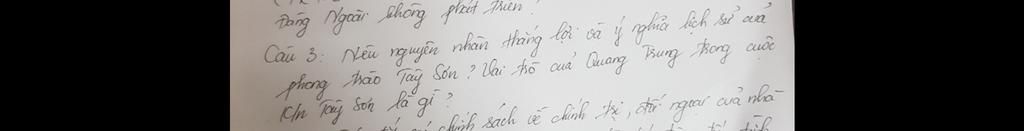 Đàng Ngoài không phát triển?
Câu 3: Nêu nguyên nhân thắng lợi và ý nghĩa lịch sử của
phong trào Tây Sơn? Vai trò của Quang Trung trong cuộc
K/n Tây Sơn là gì?
chính sách về chính trị, đối ngoại của nhà